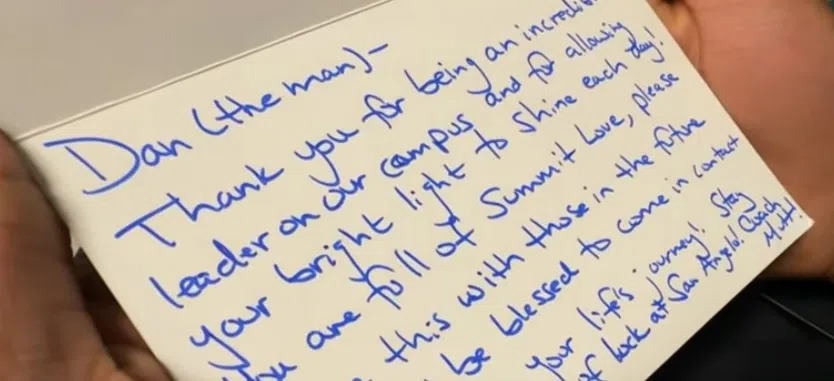 Dan (the man)-
Thank you for being an
leader on our campus and for allowing
your bright light to shine each day!
are full of Summit Love, please
this with those in the future
be blessed to come in contact
your life's journey! Stay
of luck at San Angelo! Coach
Mutt!